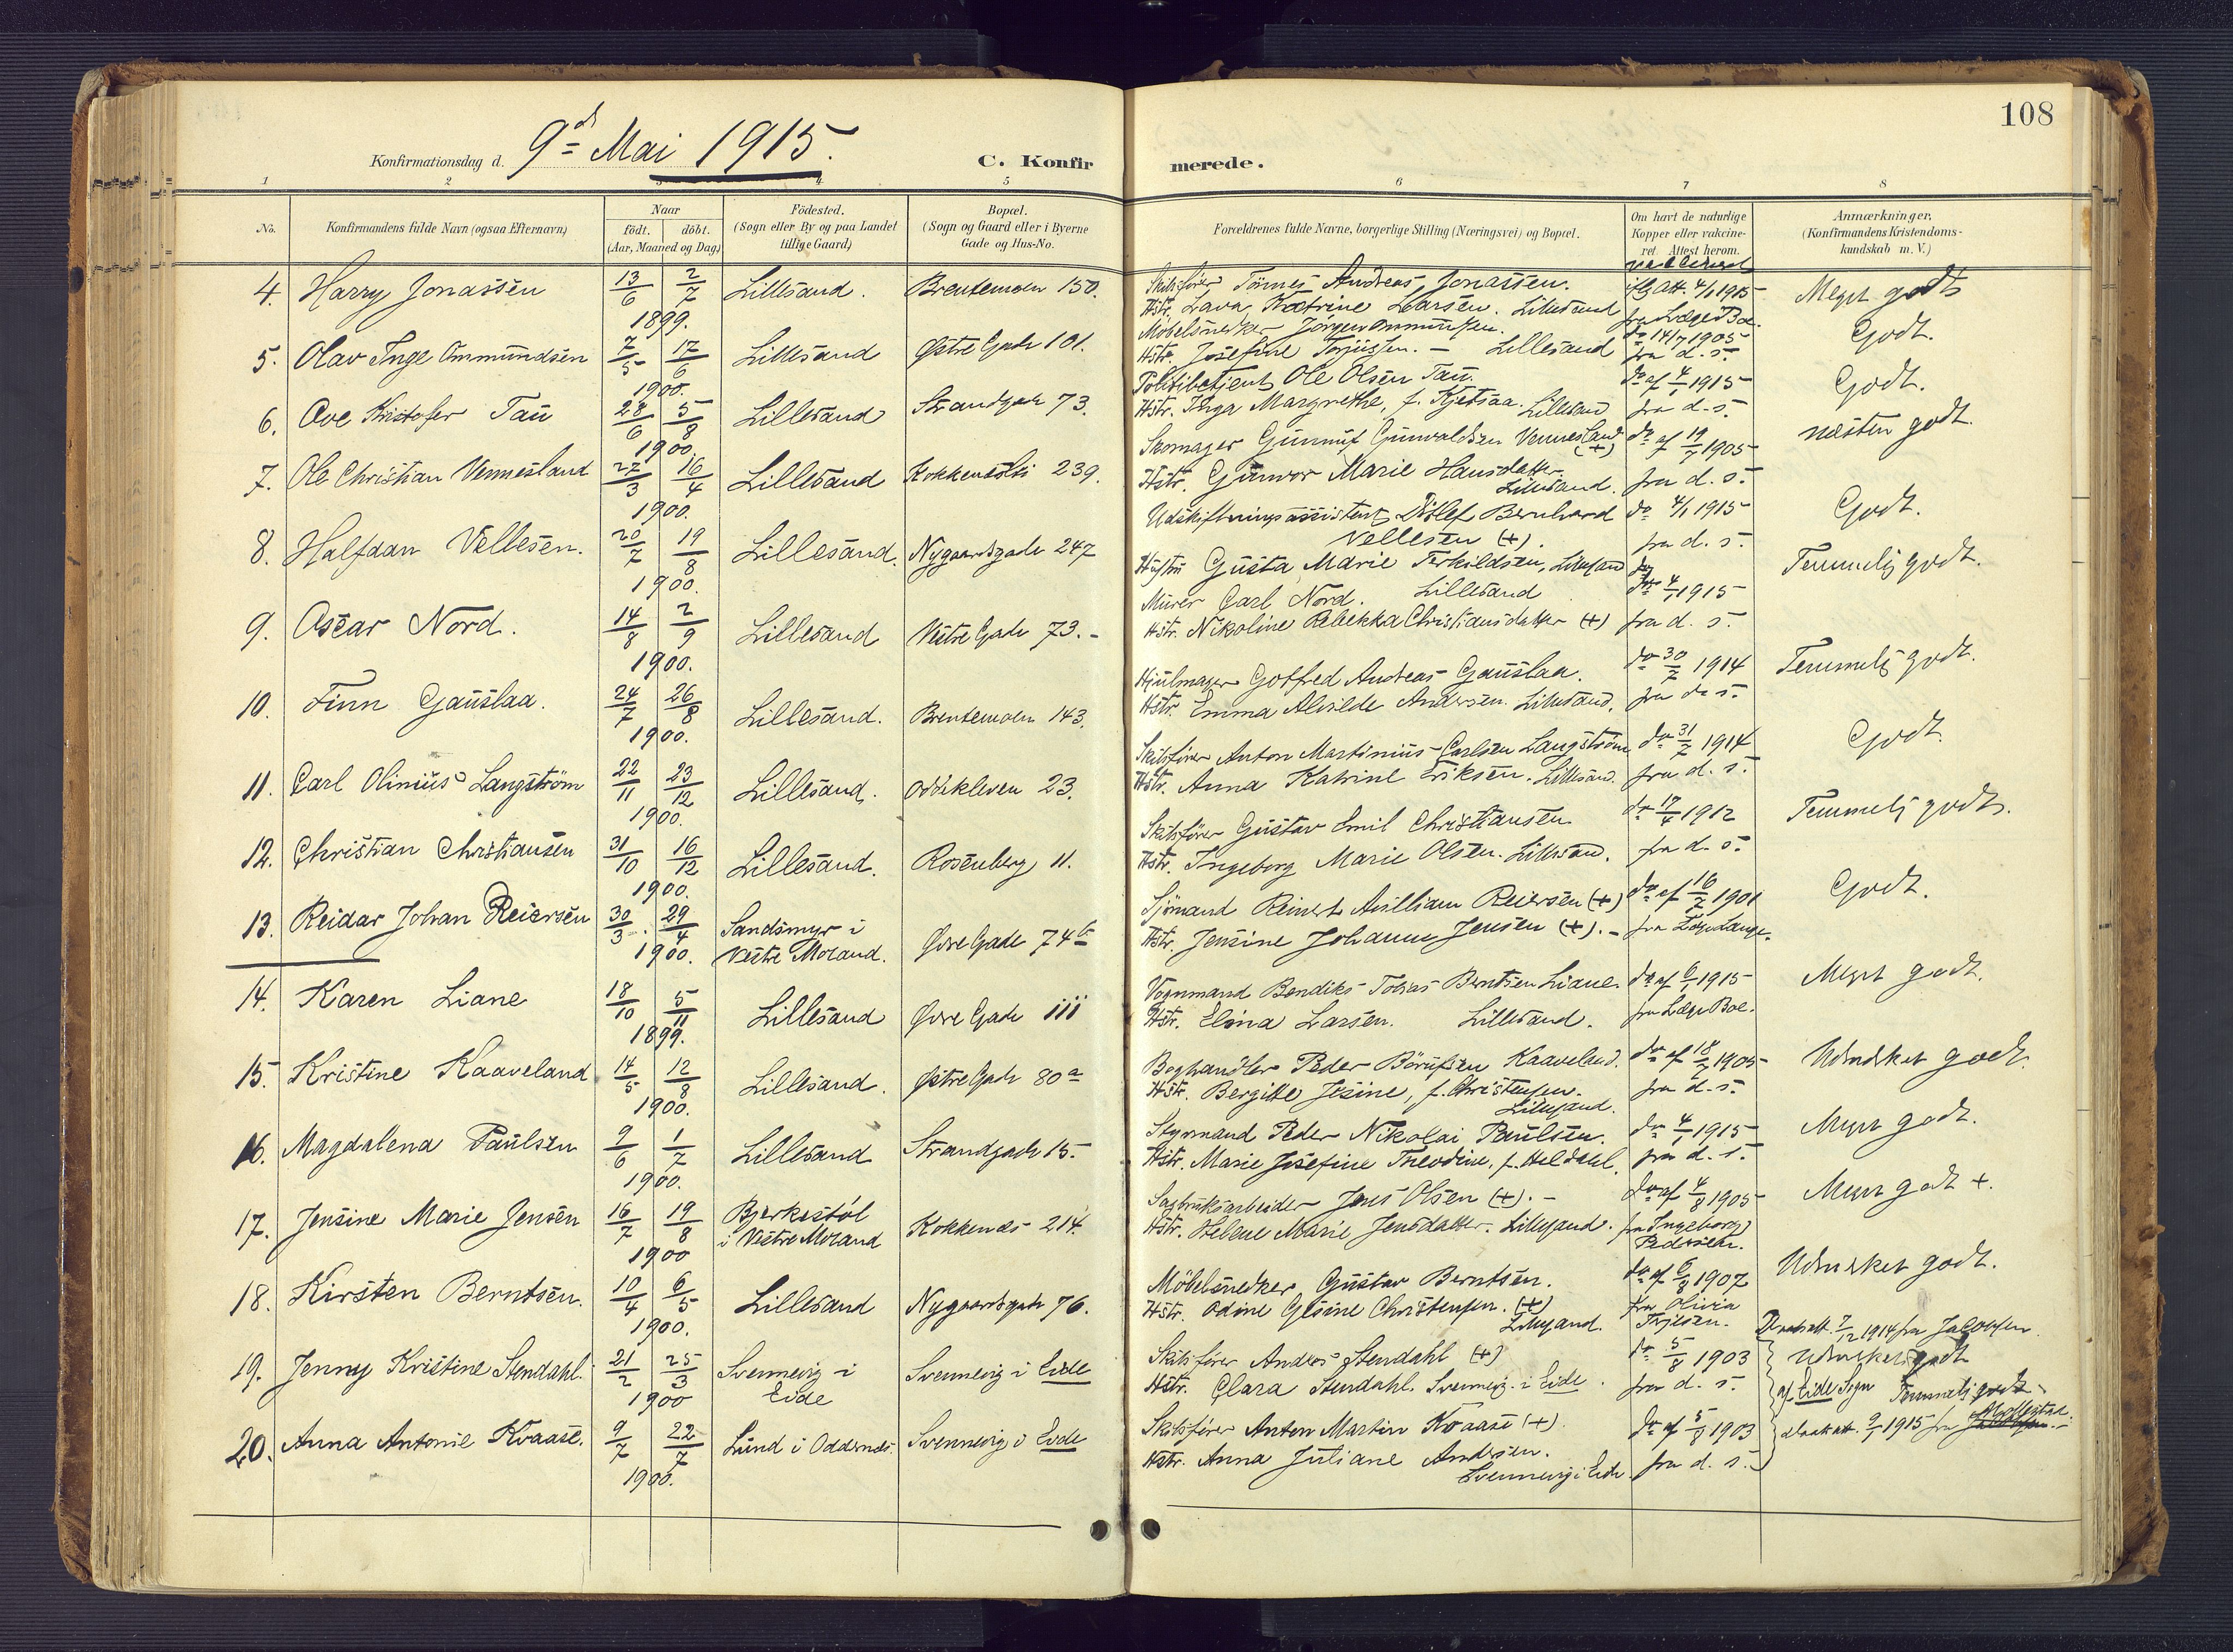 108
Konfirmationsdag d. 9d Mai 1915.
C. Konfirmerede.
1 2 3 4 5 6 7 8
No. Konfirmandens fulde Navn (ogsaa Efternavn) Naar födt. döbt. (Aar, Maaned og Dag) Födested. (Sogn eller By og paa Landet tillige Gaard) Bopæl. (Sogn og Gaard eller i Byerne Gade og Hus-No. Forældrenes fulde Navne, borgerlige Stilling (Næringsvei) og Bopæl. Om havt de naturlige Kopper eller vakcineret. Attest herom. Anmærkninger, (Konfirmandens Kristendomskundskab m. V.)
4. Harry Jonassen 13/6 2/7 1899. Lillesand. Brentemoen 150. Skibsfører Tönnes Andreas Jonassen. Hstr. Lava Katrine Larsen. Lillesand ifg Att. 4/1 1915 fra Læge Boe. Meget godt
5. Olav Inge Ommundsen 7/5 17/6 1900. Lillesand Østre Gade 101. Möbelsnedker Jörgen Ommundsen. Hstr. Josefine Terjussen. - Lillesand do 14/7 1905 fra d. s. Godt.
6. Ove Kristofer Tau 28/6 5/8 1900. Lillesand Strandgade 73. Politibetjent Ole Olsen Tau. Hstr. Inga Margrethe, f. Kjetsaa. Lillesand do af 4/1 1915 fra d. s. Godt.
7. Ole Christian Vennesland 27/3 16/4 1900. Lillesand 239. Skomager Gunnuf Gunvaldsen Vennesland (+) Hstr. Gunvor Marie Hansdatter Lillesand. do af 19/7 1905 fra d. s. næsten godt.
8. Halfdan Vellesen. 20/7 19/8 1900. Lillesand. Nygaardsgade 247 Udskiftningsassistent Ditlef Bernhard Vellesen (+). Hustru Gusta Marie Terkildsen, Lillesand do 4/1 1915 fra d. s. Godt.
9. Oscar Nord. 14/8 2/9 1900. Lillesand Vestre Gade 73.- Murer Carl Nord. Lillesand Hstr. Nikoline Rebekka Christiansdatter (+) do 4/1 1915 fra d. s. Temmelig godt.
10. Finn Gauslaa. 24/7 26/8 1900. Lillesand. Brentemoen 143. Hjulmager Gotfred Andreas Gauslaa. Hstr. Emma Alvilde Andersen. Lillesand. do 30/7 1914 fra d. s. Temmelig godt.
11. Carl Olinius Langström 22/11 23/12 1900. Lillesand. Oddekleven 23. Skibsfører Anton Martinius Carlsen Langström Hstr. Anna Katrine Eriksen. Lillesand. do 31/7 1914 fra d. s. Godt.
12. Christian Christiansen 31/10 16/12 1900. Lillesand. Rosenberg 11. Skibsfører Gustav Emil Christiansen Hstr. Ingeborg Marie Olsen. Lillesand. do 17/4 1912 fra d. s. Temmelig godt.
13. Reidar Johan Reiersen 30/3 29/4 1900. Sandsmyr i Vestre Moland. Øvre Gade 74b Sjömand Reinert William Reiersen (+) Hstr. Jensine Johanne Jensen (+). - do af 16/7 1901 fra Læge Lange. Godt.
14. Karen Liane 18/10 5/11 1899. Lillesand Øvre Gade 111 Vognmand Bendiks Tobias Berntsen Liane. Hstr. Elina Larsen. Lillesand. do af 6/1 1915 fra Læge Boe. Meget godt.
15. Kristine Kaaveland 14/5 12/8 1900. Lillesand. Østre Gade 80a Boghandler Peder Börufsen Kaaveland. Hstr. Bergitte Jesine, f. Christensen. Lillesand. do af 18/7 1905 fra d. s. Udmerket godt.
16. Magdalena Paulsen 9/6 1/7 1900. Lillesand Strandgade 15. Styrmand Peder Nikolai Paulsen. Hstr. Marie Josefine Theodine, f. Heldahl. do 4/1 1915 fra d. s. Meget godt.
17. Jensine Marie Jensen 16/7 19/8 1900 Bjerkestöl i Vestre Moland Kokkenes 214. Sagbruksarbeider Jens Olsen (+). - Hstr. Helene Marie Jensdatter. Lillesand. do af 4/8 1905 fra Ingeborg Pedersen. Meget godt +.
18. Kirsten Berntsen. 10/4 6/5 1900. Lillesand Nygaardsgade 76. Möbelsnedker Gustav Berntsen. Hstr. Odine Gesine Christensen. (+) Lillesand. do af 6/8 1907 fra Olivia Terjesen. Udmerket godt.
19. Jenny Kristine Stendahl. 21/2 25/3 1900 Svennevig i Eide Svennevig i Eide Skibsfører Andres Stendahl (+) Hstr. Clara Stendahl. Svennevig i Eide. do 5/8 1903 fra d. s. Daabsatt. 7/12 1914 fra Udmerket godt af Eide Sogn
20. Anna Antonie Kvaase. 9/7 22/7 1900. Lund i Oddernes. Svennevig i Eide Skibsfører Anton Martin Kvaase (+). Hstr. Anna Juliane Andersen. Svennevig i Eide. do af 5/8 1903 fra d. s. Temmelig godt Daabsatt. 9/1 1915 fra